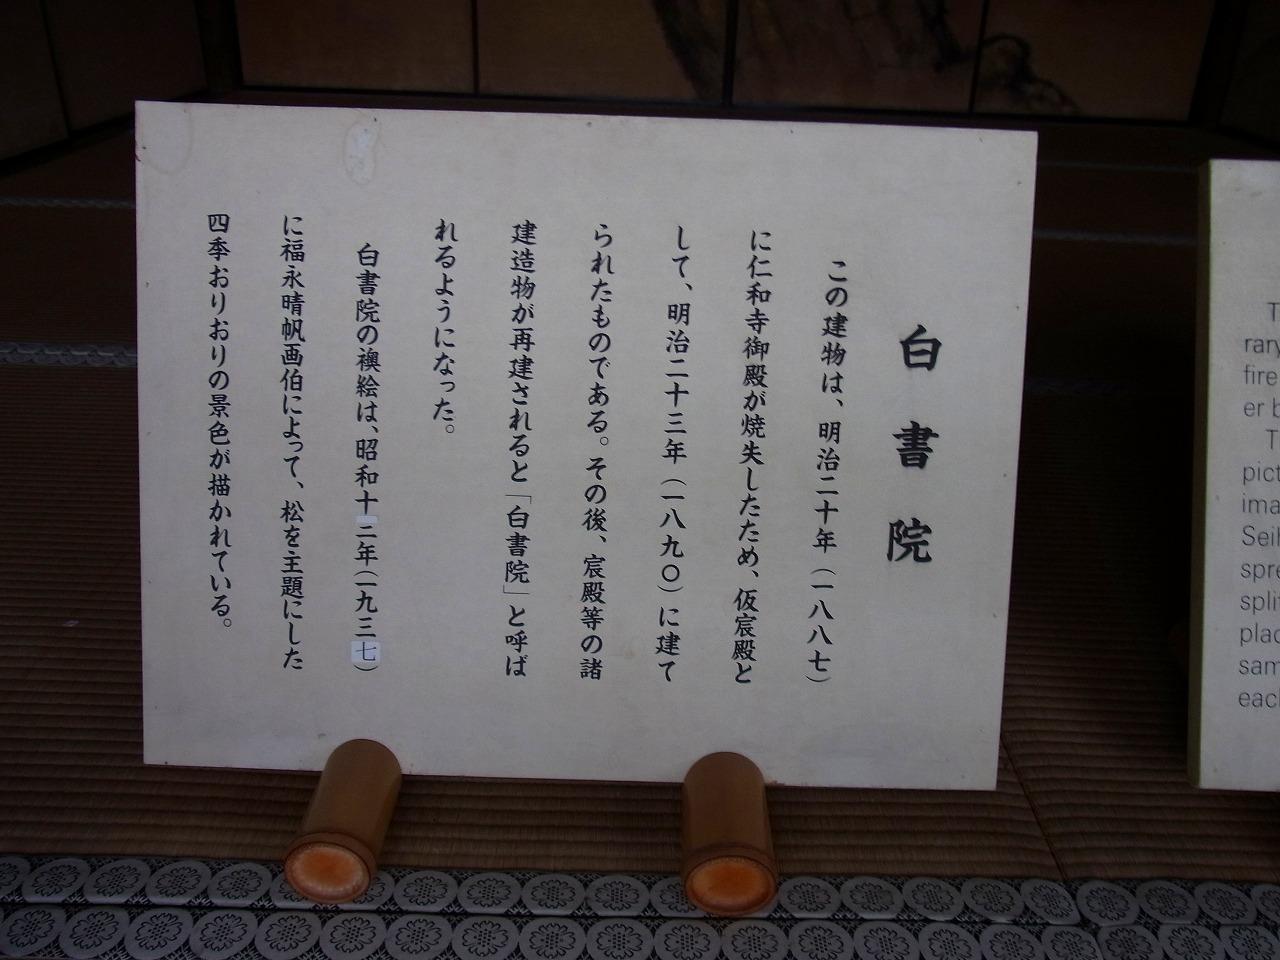 白書院
この建物は、明治二十年（一八八七）
に仁和寺御殿が焼失したため、仮宸殿と
して、明治二十三年（一八九〇）に建て
られたものである。その後、宸殿等の諸
建造物が再建されると「白書院」と呼ば
れるようになった。
白書院の襖絵は、昭和十二年（一九三七）
に福永晴帆画伯によって、松を主題にした
四季おりおりの景色が描かれている。
T
rary
fire
er b
T
pict
ima
Seih
spre
split
plac
sam
each